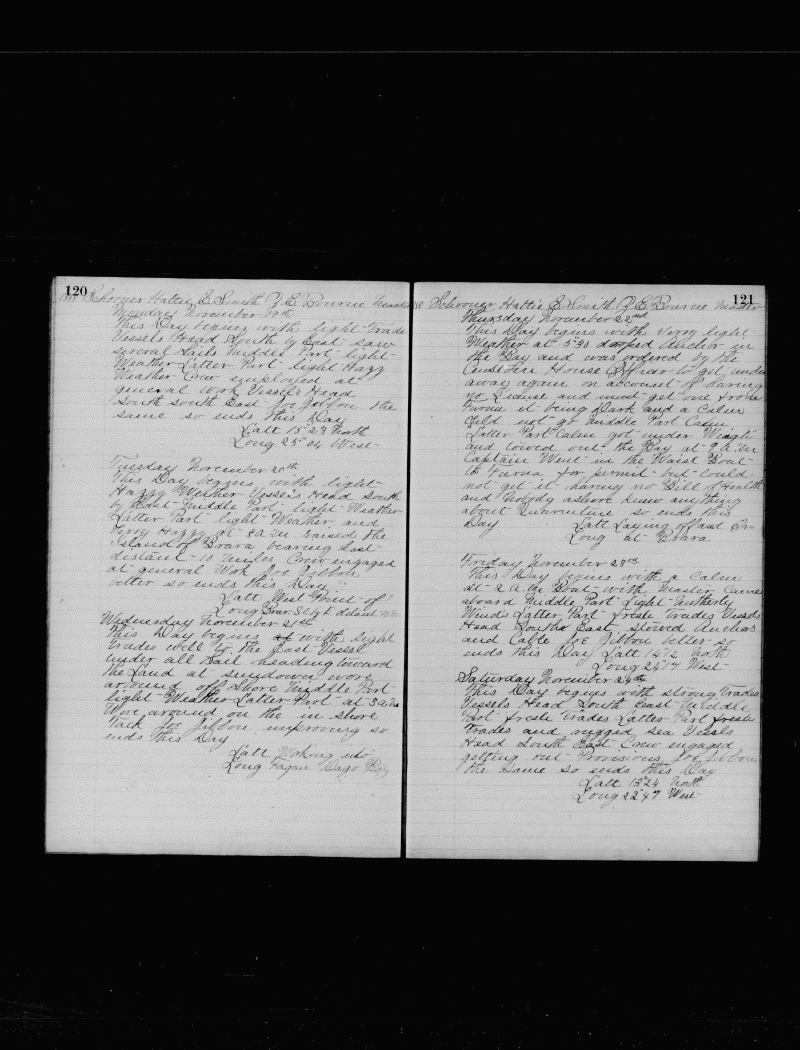 120
Schooner Hattie E Smith Z. E. Bourne Master
Monday November 19th
This Day begins with light Trade
Vessels Head South by East saw
several Sails Middle Part light
Weather Latter Part light Hazy
Weather Crew employed at
general work Vessels Head
South South East Joe Jibbou the
same so ends this Day
Latt 15°23 North
Long 25°04 West
Tuesday November 20th
This Day begins with light
Hazzy Weather Vessels Head South
by East Middle Part light Weather
Latter Part light Weather and
Verry Hazzy at 8 A.M raised the
Island of Brava bearing East
distant 10 miles Crew engaged
at general Work Joe Jibbou
better so ends this Day
Latt West Point of
Long Brava S by E distant
Wednesday November 21st
This Day begins with light
Trades well to the East Vessel
under all Sail heading toward
the Land at sundown wore
around off Shore Middle Part
light Weather Latter Part at 3 A.M
Wore around on the in shore
Tack Joe Jibbou improving so
ends this Day
Latt Working into
Long Fagan Dago
121
Schooner Hattie E Smith Z. E. Bourne Master
Thursday November 22nd
This Day begins with Verry light
Weather at 5 droped Anchor in
the Bay and was ordered by the
Custom House Officer to get under
away again on account of having
no License and must get one from
Furna it being Dark and a Calm
Could not go Middle Part Calm
Latter Part Calm got under Weigh
and towed out the Bay at 9 A.M
Captain Went in the Waist Boat
to Furna for permit but could
not get it having no Bill of Health
and nobody ashore knew anything
about Quarantine so ends this
Day Latt Laying off and On
Long at Brava
Friday November 23rd
This Day begins with a Calm
at 2 A.M Boat with Master Came
aboard Middle Part Light Northerly
Winds Latter Part fresh Trades Vessels
Head South East stowed Anchors
and Cable Joe Jibbou better so
ends this Day Latt 14°12 North
Long 24°17 West
Saturday November 24th
This Day begins with strong Trades
Vessels Head South East Middle
Part fresh Trades Latter Part fresh
Trades and rugged Sea Vessels
Head South East Crew engaged
getting out Provisions Joe Jibbou
the same so ends this Day
Latt 12°24 North
Long 22°47 West